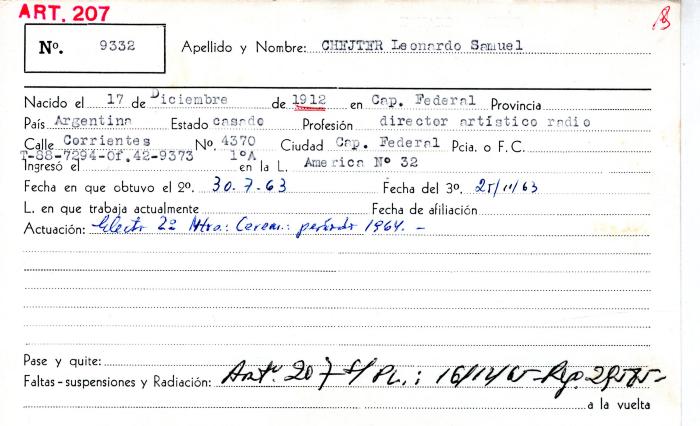 ART. 207
Nº. 9332 Apellido y Nombre: CHEJTER Leonardo Samuel
Nacido el 17 de Diciembre de 1912 en Cap. Federal Provincia
País Argentina Estado casado Profesión director artístico radio
Calle Corrientes Nº. 4370 Ciudad Cap. Federal Pcia. o F.C.
T-88-7294-Of.42-9373 1ºA
Ingresó el en la L. America Nº 32
Fecha en que obtuvo el 2º. 30.7.63 Fecha del 3º. 25/11/63
L. en que trabaja actualmente Fecha de afiliación
Actuación: Electo 2º Mtro.: Cerem.: período 1964. -
Pase y quite:
Faltas - suspensiones y Radiación: Art. 207 s/ Pl.: 16/12/65
a la vuelta